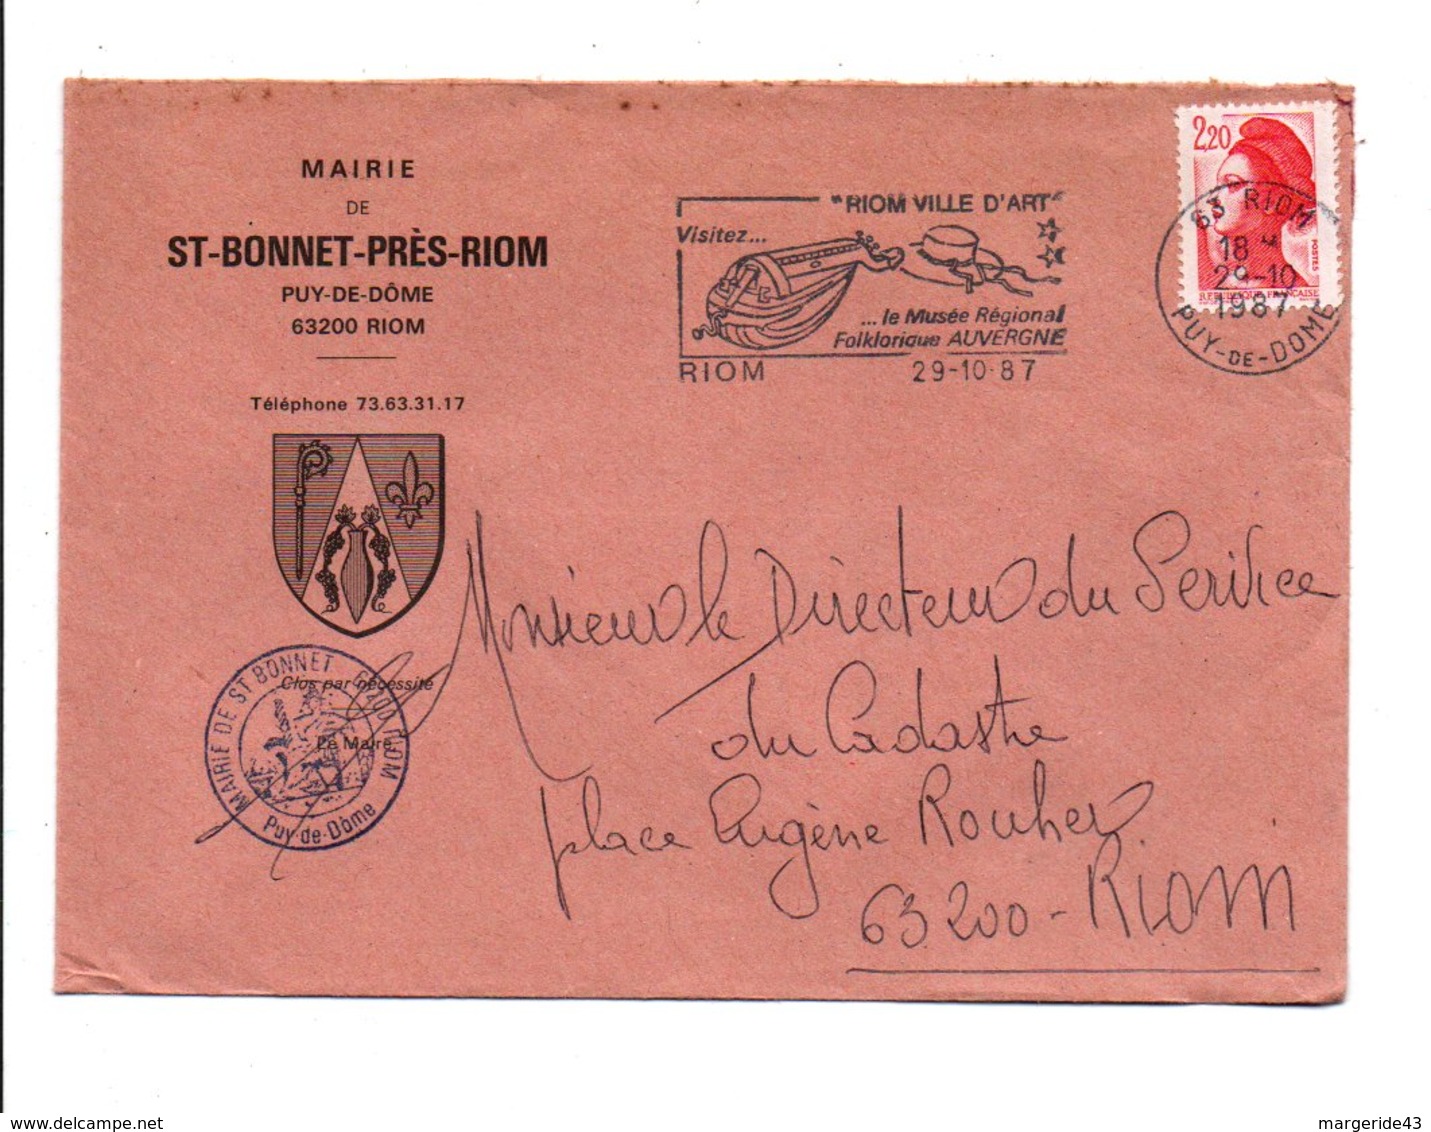 MAIRIE
DE
ST-BONNET-PRÈS-RIOM
PUY-DE-DÔME
63200 RIOM
Téléphone 73.63.31.17
Clos par nécessité
Le Maire
MAIRIE DE ST BONNET 63200 RIOM
Puy-de-Dôme
"RIOM VILLE D'ART"
Visitez...
...le Musée Régional
Folklorique AUVERGNE
RIOM 29-10-87
2,20
POSTES
REPUBLIQUE FRANÇAISE
63 RIOM
18 H
29-10
1987
PUY-DE-DOME
Monsieur le Directeur du Service
du Cadastre
place Eugène Rouher
63200 - RIOM
delcampe.net
margeride43